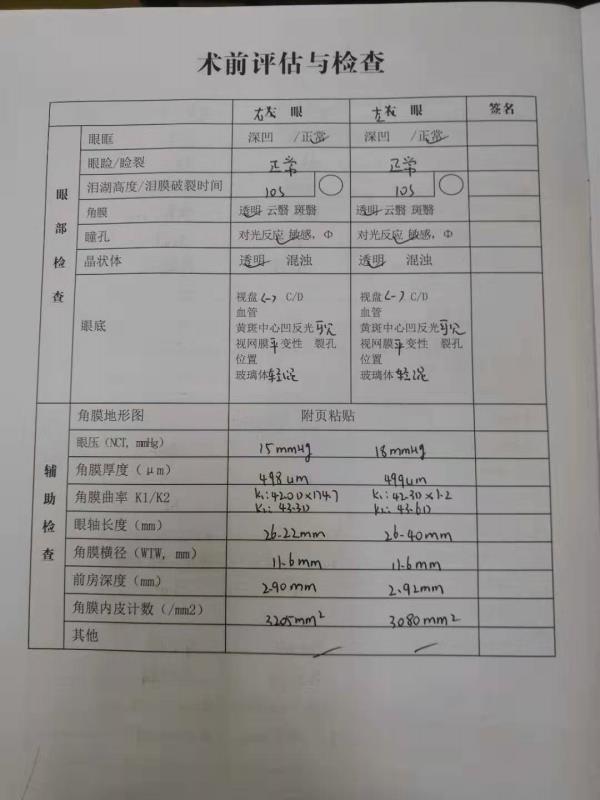 术前评估与检查
右眼 左眼 签名
眼部检查
眼眶 深凹 /正常 深凹 /正常
眼睑/睑裂 正常 正常
泪湖高度/泪膜破裂时间 10s 10s
角膜 透明 云翳 斑翳 透明 云翳 斑翳
瞳孔 对光反应 敏感，Φ 对光反应 敏感，Φ
晶状体 透明 混浊 透明 混浊
眼底
视盘(-) C/D 视盘(-) C/D
血管 血管
黄斑中心凹反光可见 黄斑中心凹反光可见
视网膜平 变性 裂孔 视网膜平 变性 裂孔
位置 位置
玻璃体轻混 玻璃体轻混
辅助检查
角膜地形图 附页粘贴
眼压（NCT, mmHg） 15mmHg 18mmHg
角膜厚度（μm） 498um 499um
角膜曲率 K1/K2 K1:42.0D×174.7 K1:42.3D×1.2
K2: 43.3D K2: 43.6D
眼轴长度（mm） 26.22mm 26.40mm
角膜横径（WTW, mm） 11.6mm 11.6mm
前房深度（mm） 2.90mm 2.92mm
角膜内皮计数（/mm2） 3205mm² 3080mm²
其他